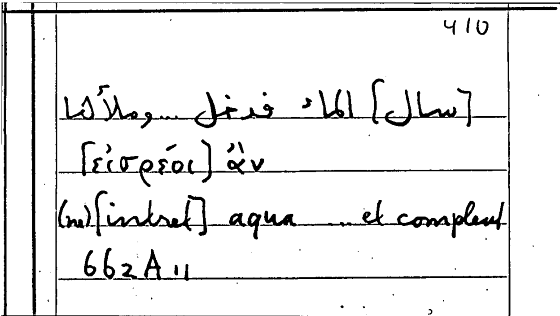 410
[سال] الماء فدخل ... وملأها
[εἰσρέοι] ἂν
(ne) [intret] aqua ... et compleat
662 A 11